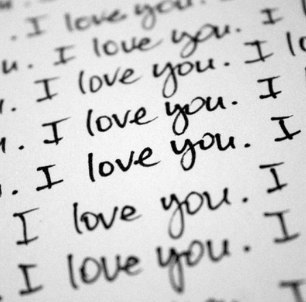 . I love you.
u. I love you. I
. I love you. I lo
. I love you. I
. I love you. I
I love you. I
I love you. I